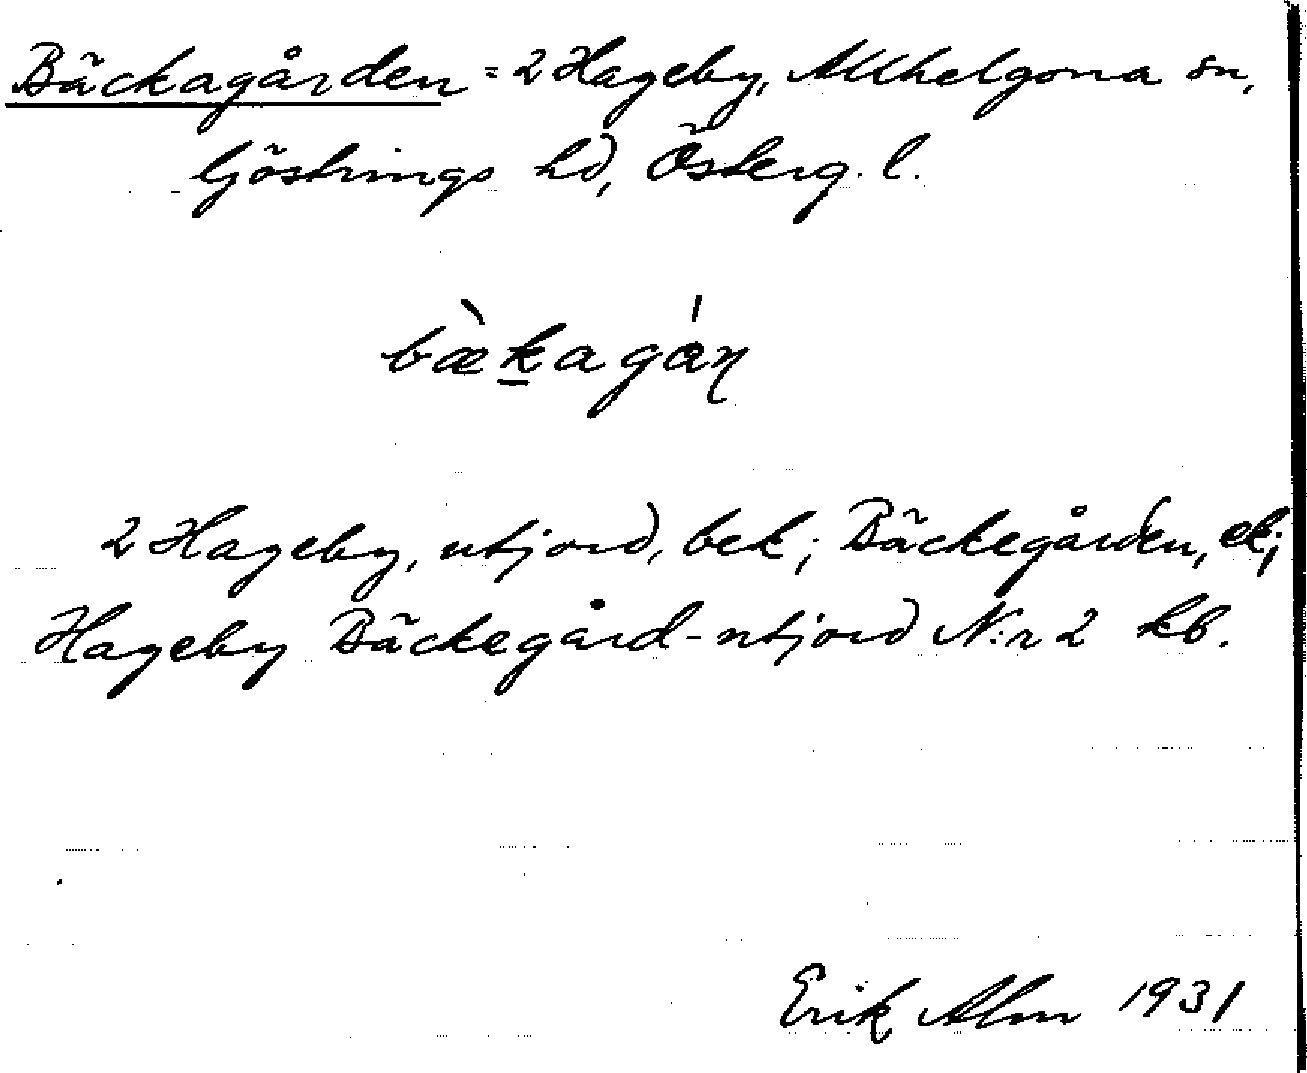 Bäckagården = 2 Hageby, Allhelgona sn,
Göstrings hd, Österg. l.
bæ̀k̲agán̡
2 Hageby, utjord, bek; Bäckegården, ek;
Hageby Bäckegård-utjord N:r 2 kb.
Erik Alm 1931